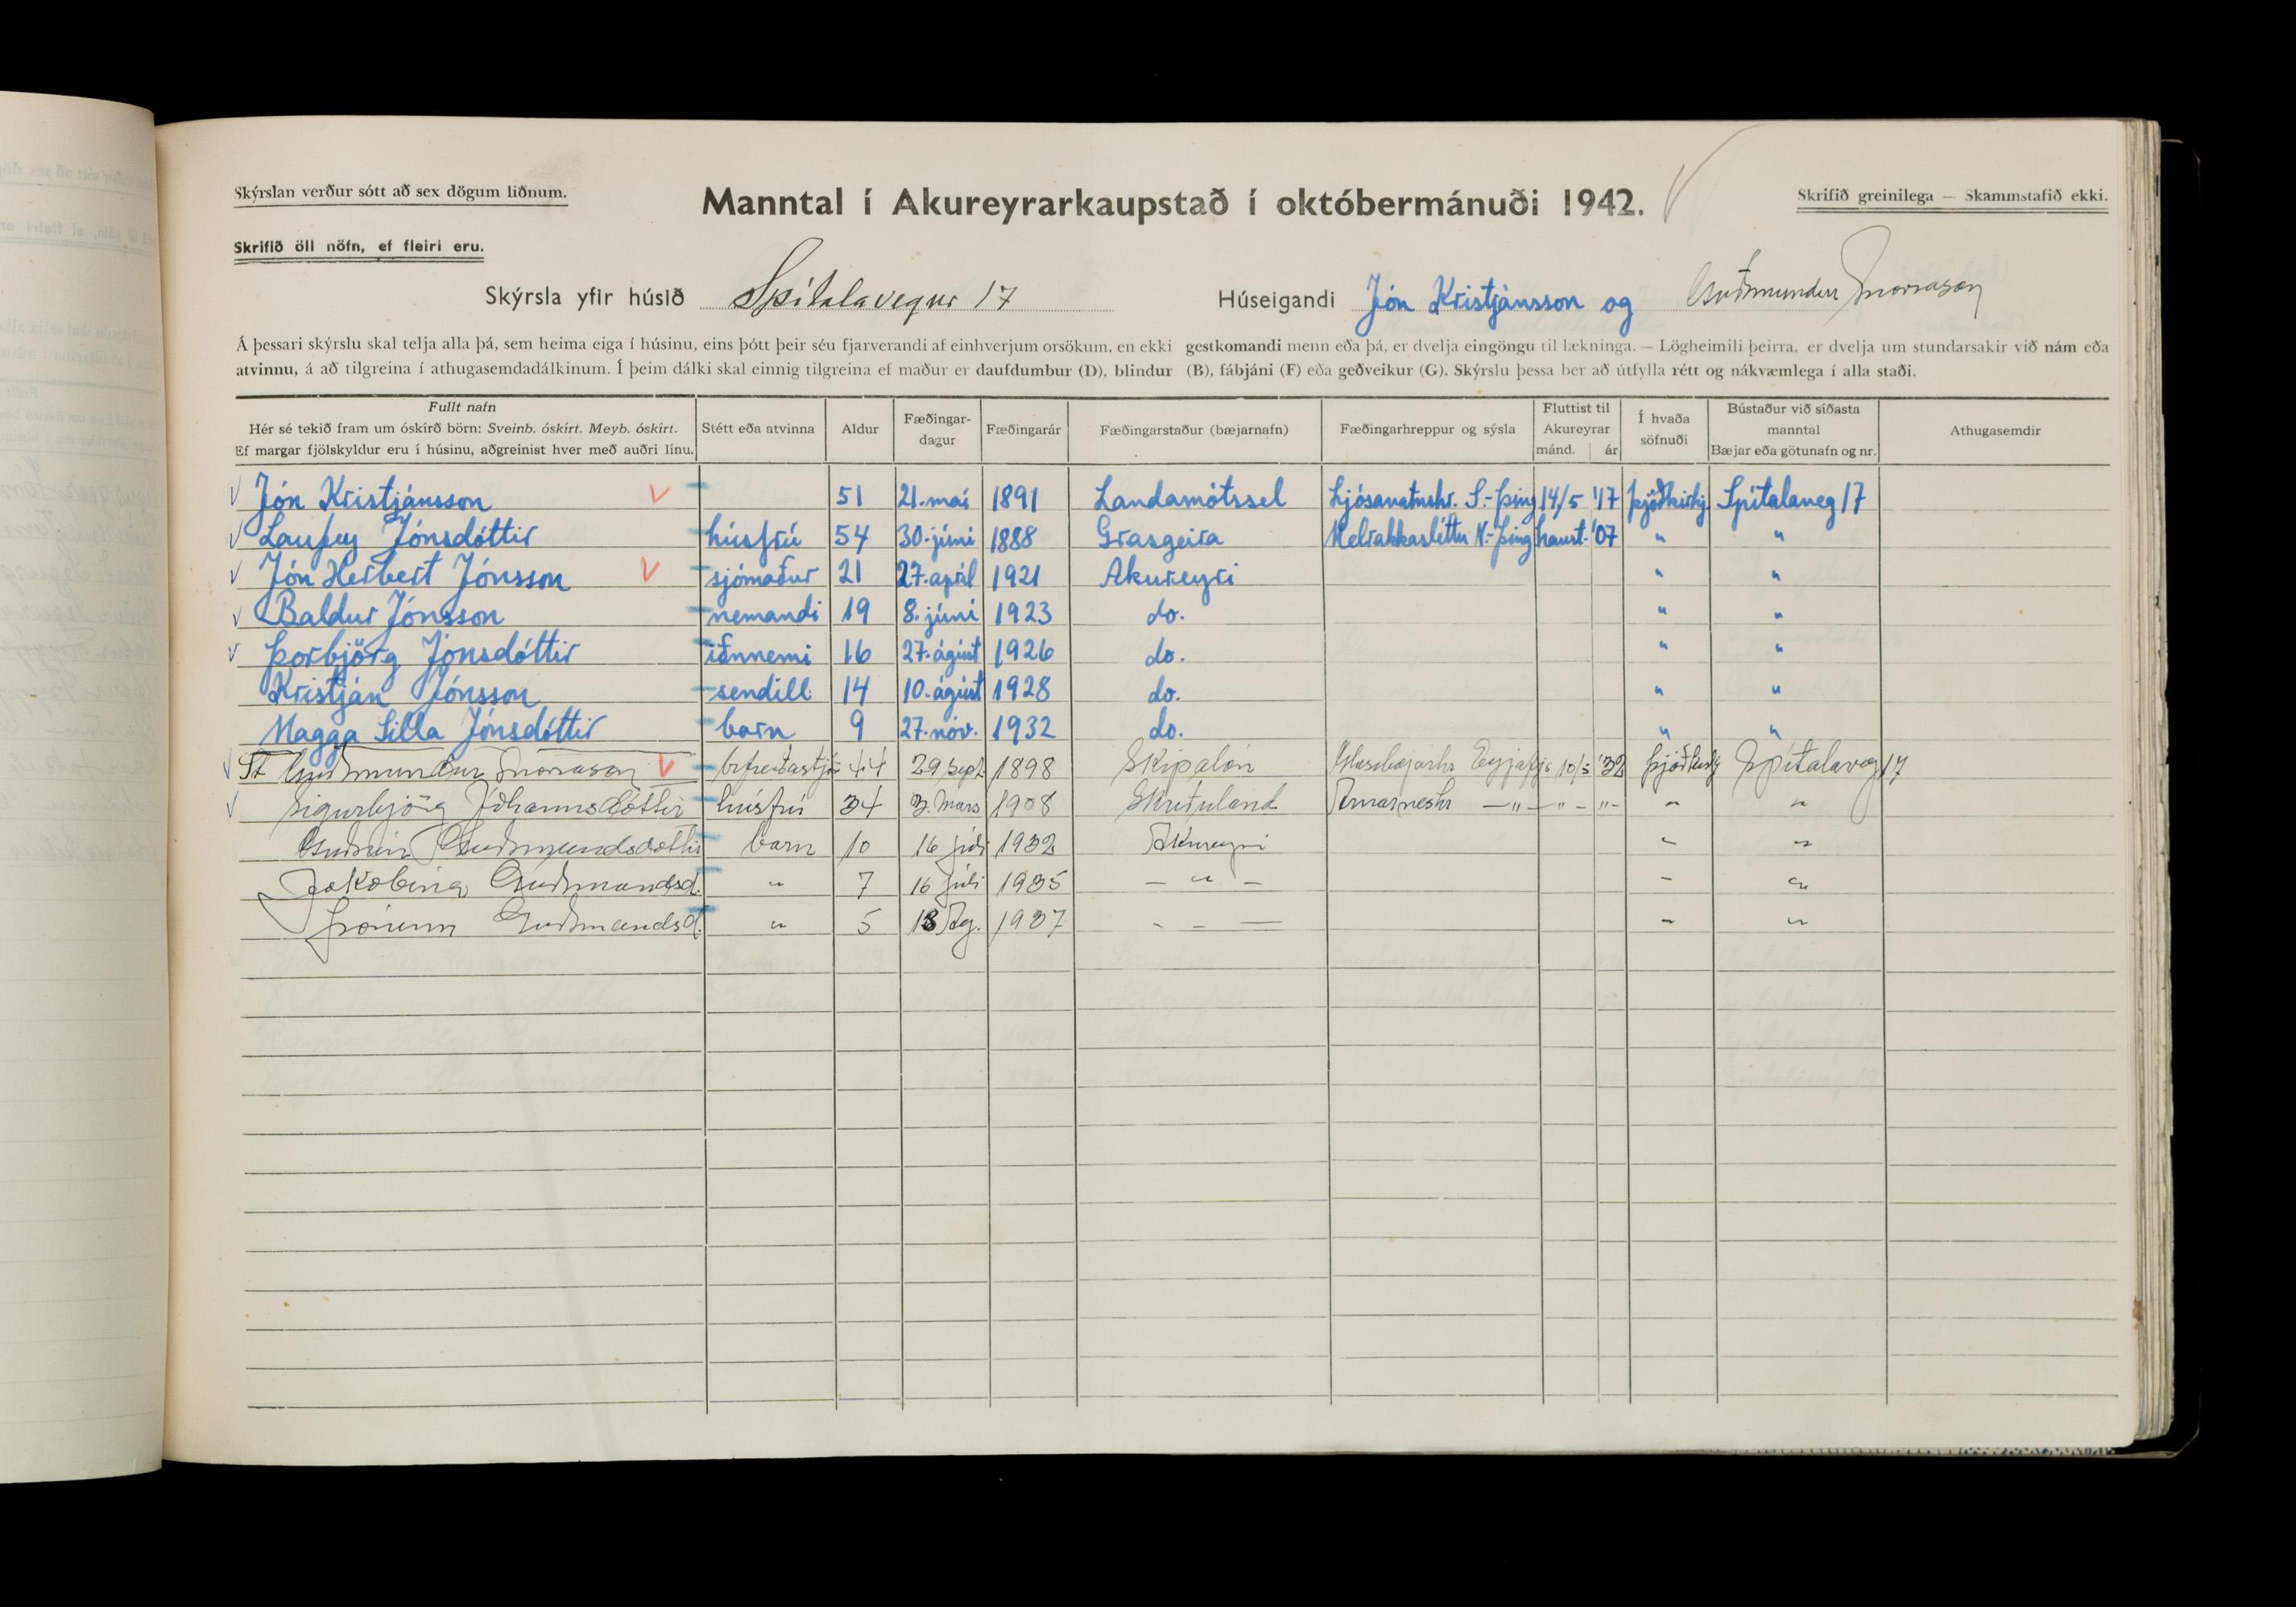 Skýrslan verður sótt að sex dögum liðnum.
Manntal í Akureyrarkaupstað í októbermánuði 1942.
Skrifið greinilega — Skammstafið ekki.
Skrifið öll nöfn, ef fleiri eru.
Skýrsla yfir húsið Spítalavegur 17 Húseigandi Jón Kristjánsson og Guðmundur Snorrason
Á þessari skýrslu skal telja alla þá, sem heima eiga í húsinu, eins þótt þeir séu fjarverandi af einhverjum orsökum, en ekki gestkomandi menn eða þá, er dvelja eingöngu til lækninga. — Lögheimili þeirra, er dvelja um stundarsakir við nám eða
atvinnu, á að tilgreina í athugasemdadálkinum. Í þeim dálki skal einnig tilgreina ef maður er daufdumbur (D), blindur (B), fábjáni (F) eða geðveikur (G). Skýrslu þessa ber að útfylla rétt og nákvæmlega í alla staði.
Fullt nafn
Hér sé tekið fram um óskírð börn: Sveinb. óskírt. Meyb. óskírt.
Ef margar fjölskyldur eru í húsinu, aðgreinist hver með auðri línu.
Stétt eða atvinna
Aldur
Fæðingar-
dagur
Fæðingarár
Fæðingarstaður (bæjarnafn)
Fæðingarhreppur og sýsla
Fluttist til
Akureyrar
mánd. ár
Í hvaða
söfnuði
Bústaður við síðasta
manntal
Bæjar eða götunafn og nr.
Athugasemdir
Jón Kristjánsson 51 21. maí 1891 Landamótssel Ljósavatnshr. S.-Þing 14/5 '17 þjóðkirkj. Spítalaveg 17
Laufey Jónsdóttir húsfrú 54 30. júní 1888 Grasgeira Melrakkasléttu N.-Þing haust. '07 " "
Jón Herbert Jónsson sjómaður 21 27. apríl 1921 Akureyri " "
Baldur Jónsson nemandi 19 8. júní 1923 do. " "
Þorbjörg Jónsdóttir iðnnemi 16 27. ágúst 1926 do. " "
Kristján Jónsson sendill 14 10. ágúst 1928 do. " "
Magga Silla Jónsdóttir barn 9 27. nóv. 1932 do. " "
St Guðmundur Snorrason bifreiðastjó 44 29 Sept 1898 Skipalón Glæsibæjarhr Eyjafjs 10/5 '32 Spítalaveg 17
Sigurbjörg Jóhannsdóttir húsfrú 34 3. Mars 1908 Skriðuland Arnarneshr — " — " - " - " "
Guðrún Guðmundsdóttir barn 10 16 Júlí 1932 Akureyri " "
Jakobína Guðmundsd. " 7 16 Júlí 1935 — " — - "
Þórunn Guðmundsd. " 5 13 Ág. 1937 - - — - "